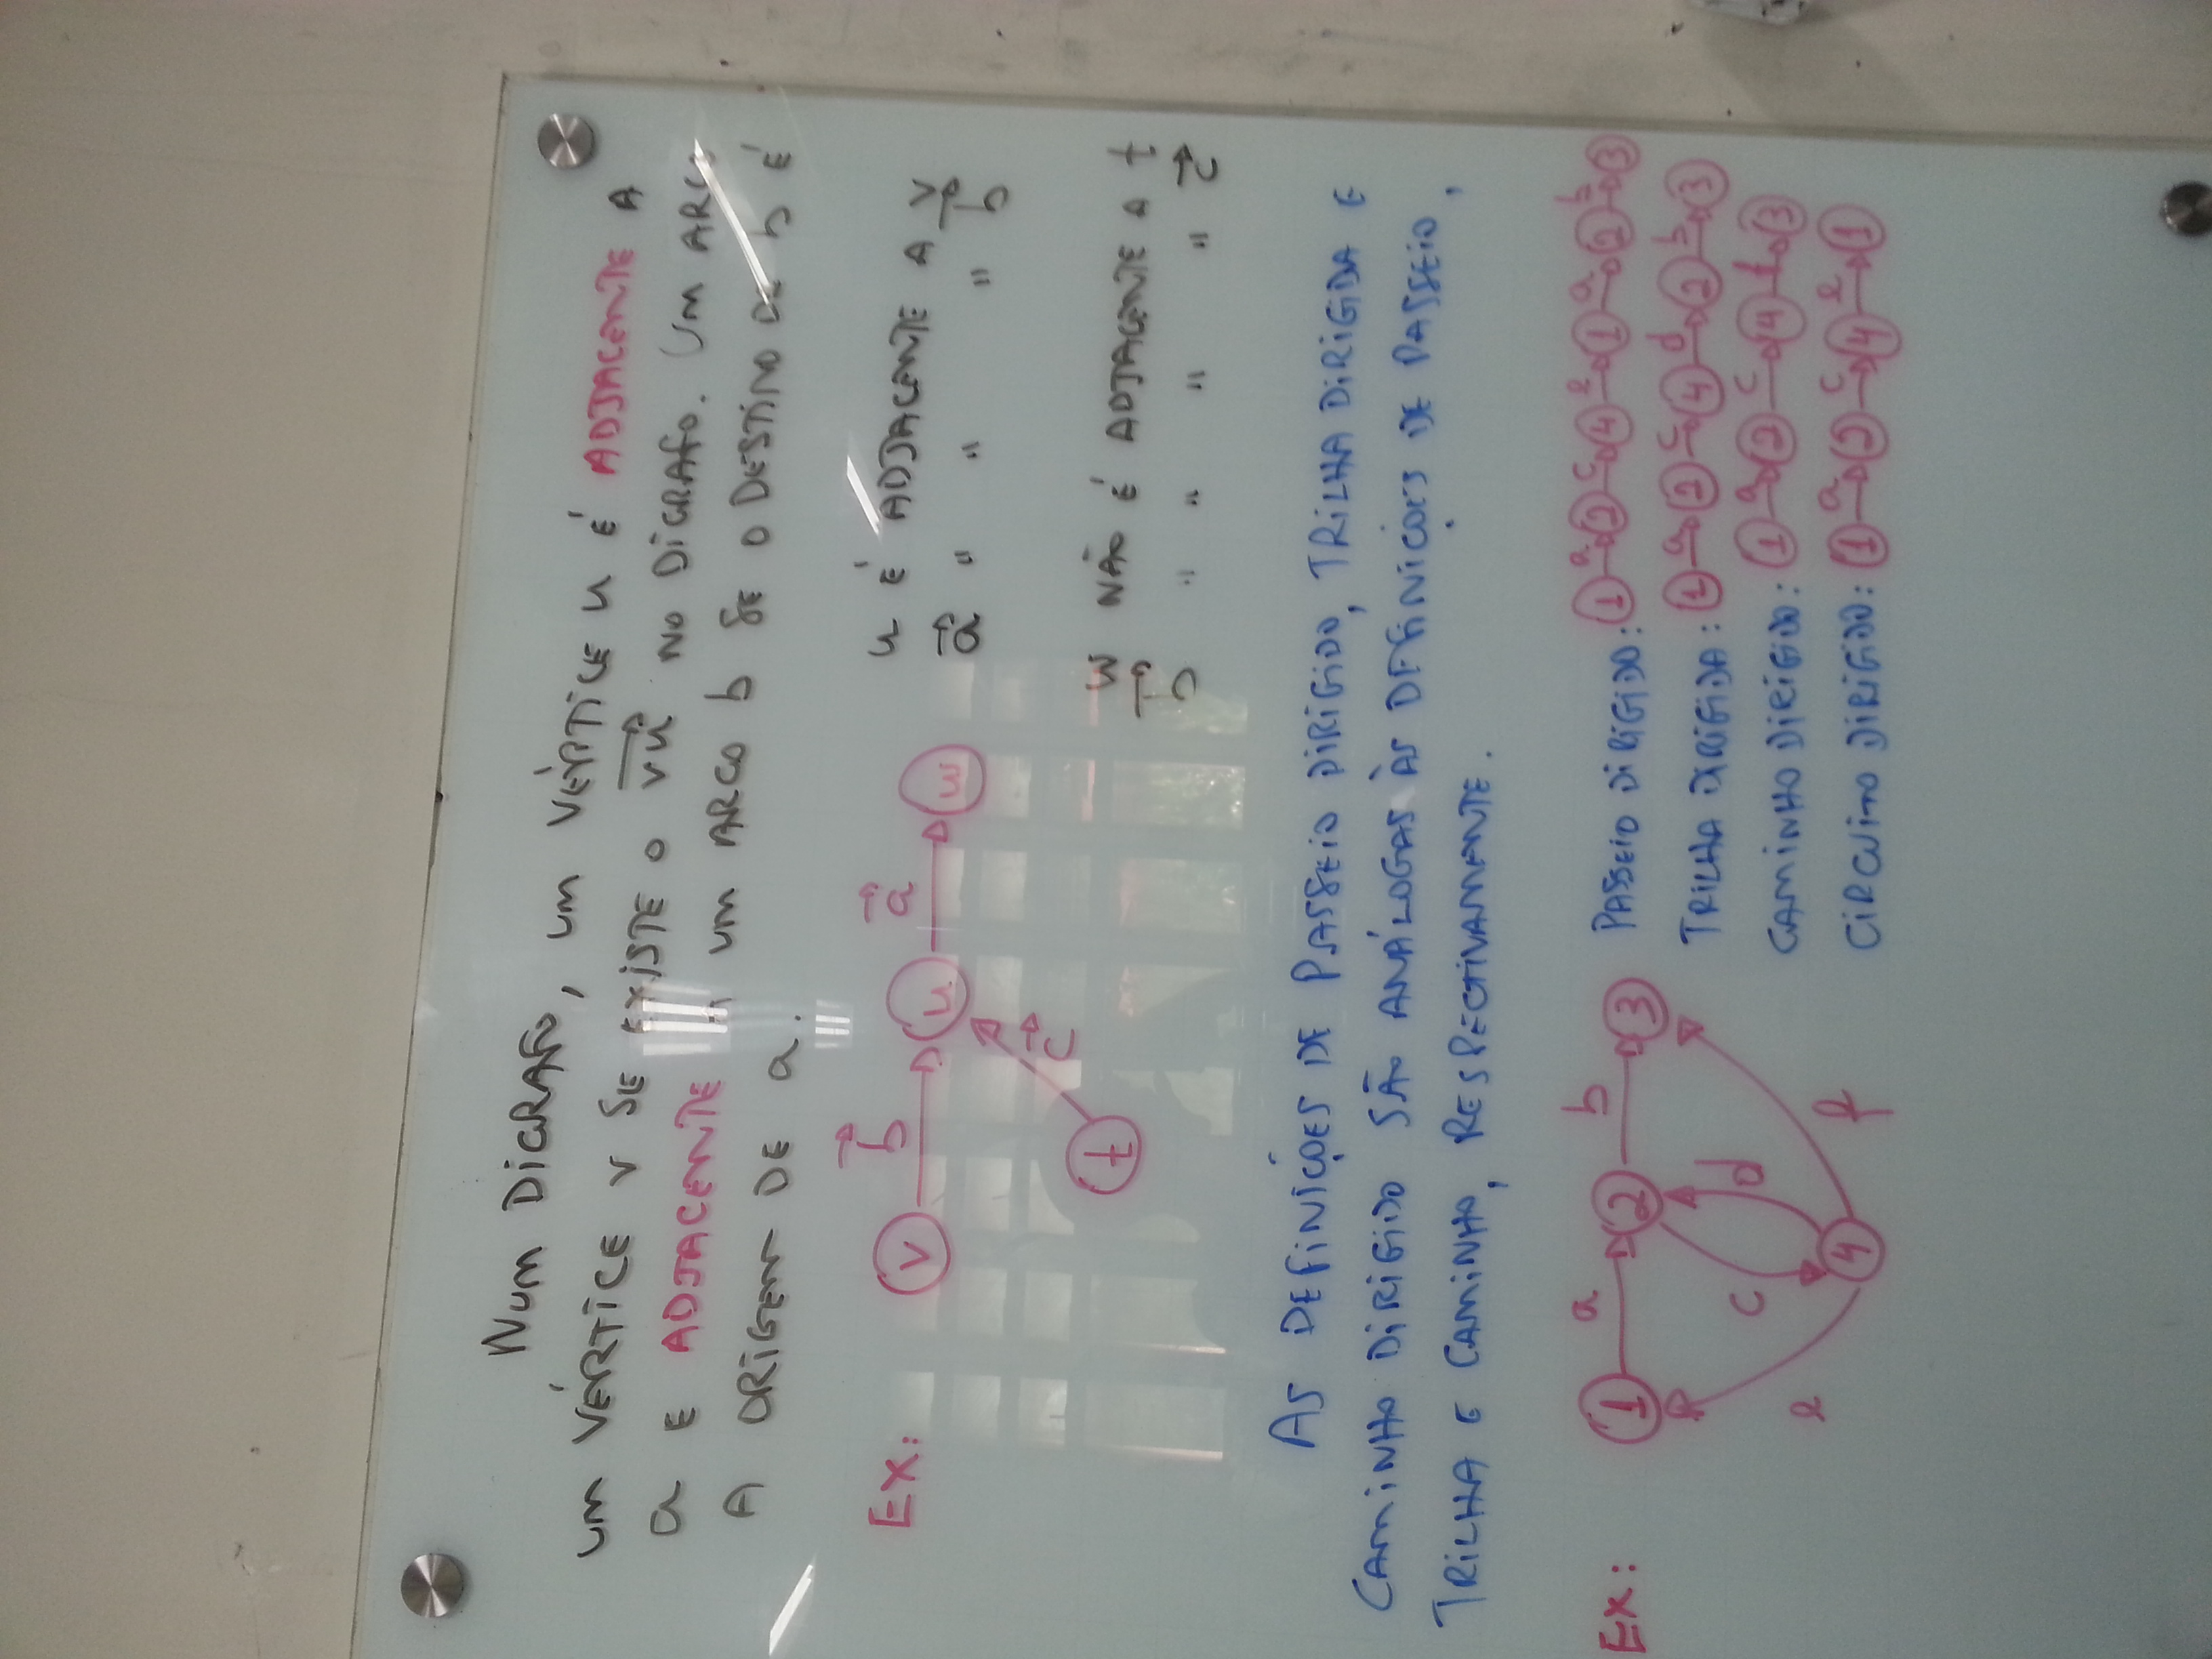 NUM DIGRAFO, UM VÉRTICE u É ADJACENTE A
UM VÉRTICE v SE EXISTE O vu NO DIGRAFO. UM ARCO
a E ADJACENTE A UM ARCO b SE O DESTINO DE b É
A ORIGEM DE a.
EX:
v b u a w
c
t
u É ADJACENTE A v
a " " " b
w NÃO É ADJACENTE A t
b " " " " c
AS DEFINIÇÕES DE PASSEIO DIRIGIDO, TRILHA DIRIGIDA E
CAMINHO DIRIGIDO SÃO ANÁLOGAS ÀS DEFINIÇÕES DE PASSEIO,
TRILHA E CAMINHO, RESPECTIVAMENTE.
EX:
1 a 2 b 3
c d
e f
4
PASSEIO DIRIGIDO: 1 a 2 c 4 e 1 a 2 b 3
TRILHA DIRIGIDA: 1 a 2 c 4 d 2 b 3
CAMINHO DIRIGIDO: 1 a 2 c 4 f 3
CIRCUITO DIRIGIDO: 1 a 2 c 4 e 1